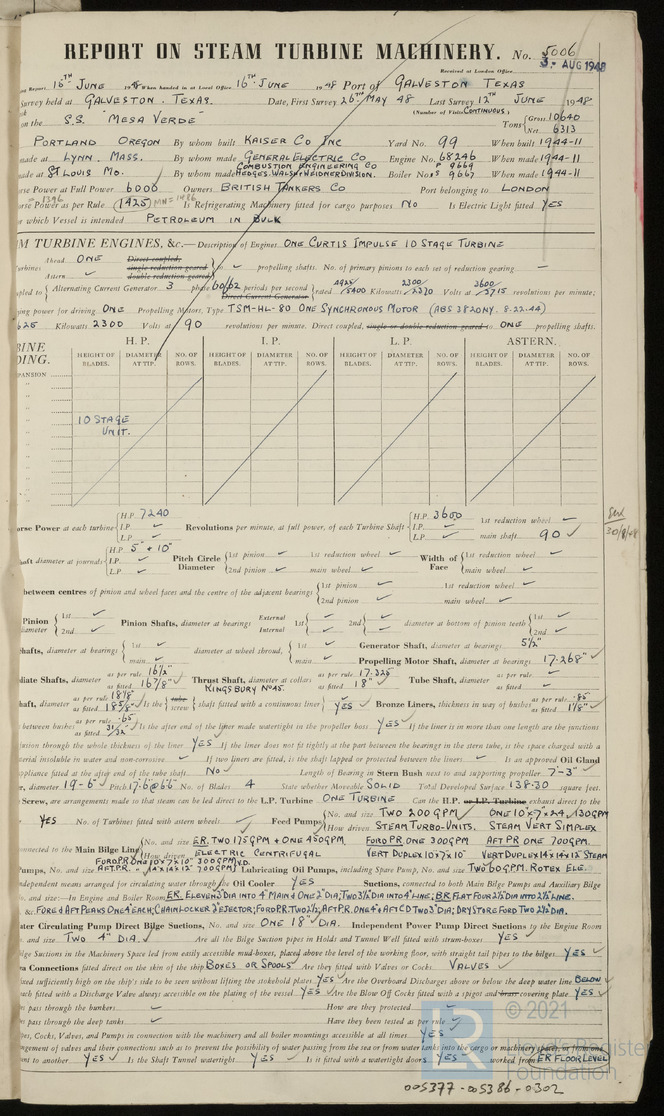 REPORT ON STEAM TURBINE MACHINERY. No. 5006
Received at London Office 3 - AUG 1948
Report, 16TH JUNE 1948 When handed in at Local Office 16TH JUNE 1948 Port of GALVESTON TEXAS
Survey held at GALVESTON. TEXAS. Date, First Survey 26TH MAY 48 Last Survey 12TH JUNE 1948
(Number of Visits CONTINUOUS.)
on the S.S. "MESA VERDE" Tons Gross 10640 Net 6313
PORTLAND OREGON By whom built KAISER CO INC Yard No. 99 When built 1944-11
made at LYNN. MASS. By whom made GENERAL ELECTRIC CO Engine No. 68246 When made 1944-11
made at ST LOUIS MO. By whom made COMBUSTION ENGINEERING CO HEDGES. WALSH WEIDNER DIVISION. Boiler Nos P 9669 S 9667 When made 1944-11
Power at Full Power 6000 Owners BRITISH TANKERS CO Port belonging to LONDON
Power as per Rule 1425 Is Refrigerating Machinery fitted for cargo purposes NO Is Electric Light fitted YES
for which Vessel is intended PETROLEUM IN BULK
M TURBINE ENGINES, &c.—Description of Engines ONE CURTIS IMPULSE 10 STAGE TURBINE
Ahead ONE Direct coupled, single reduction geared double reduction geared to propelling shafts. No. of primary pinions to each set of reduction gearing.
Astern
coupled to Alternating Current Generator 3 phase 60/62 periods per second Direct Current Generator rated 4925/5400 Kilowatts 2300/2370 Volts at 3600/3715 revolutions per minute;
for driving ONE Propelling Motors, Type TSM-HL-80 ONE SYNCHRONOUS MOTOR (ABS 3820NY. 8.22.44)
Kilowatts 2300 Volts at 90 revolutions per minute. Direct coupled, single or double reduction geared to ONE propelling shafts.
H. P. I. P. L. P. ASTERN.
HEIGHT OF BLADES. DIAMETER AT TIP. NO. OF ROWS. HEIGHT OF BLADES. DIAMETER AT TIP. NO. OF ROWS. HEIGHT OF BLADES. DIAMETER AT TIP. NO. OF ROWS. HEIGHT OF BLADES. DIAMETER AT TIP. NO. OF ROWS.
10 STAGE
UNIT.
Power at each turbine H.P. 7240 I.P. L.P. Revolutions per minute, at full power, of each Turbine Shaft H.P. 3600 I.P. L.P. 1st reduction wheel main shaft 90
Shaft diameter at journals H.P. 5" & 10" I.P. L.P. Pitch Circle Diameter 1st pinion 2nd pinion 1st reduction wheel main wheel Width of Face 1st reduction wheel main wheel
between centres of pinion and wheel faces and the centre of the adjacent bearings 1st pinion 2nd pinion 1st reduction wheel main wheel
Pinion diameter 1st 2nd Pinion Shafts, diameter at bearings External Internal 1st 2nd diameter at bottom of pinion teeth 1st 2nd
Shafts, diameter at bearings 1st main diameter at wheel shroud, 1st main Generator Shaft, diameter at bearings 5½"
Propelling Motor Shaft, diameter at bearings 17.268"
Shafts, diameter as per rule 16½" as fitted 16⅞" Thrust Shaft, diameter at collars as per rule 17.325 as fitted 18" Tube Shaft, diameter as per rule as fitted
KINGSBURY No45.
shaft, diameter as per rule 18⅛" as fitted 18⅝" Is the tube screw shaft fitted with a continuous liner YES Bronze Liners, thickness in way of bushes as per rule .85" as fitted 1⅛"
between bushes as per rule .65 as fitted 31/32" Is the after end of the liner made watertight in the propeller boss YES If the liner is in more than one length are the junctions
through the whole thickness of the liner YES If the liner does not fit tightly at the part between the bearing in the stern tube, is the space charged with a
material insoluble in water and non-corrosive If two liners are fitted, is the shaft lapped or protected between the liners Is an approved Oil Gland
appliance fitted at the after end of the tube shaft. NO Length of Bearing in Stern Bush next to and supporting propeller 7'-3"
diameter 19'-6" No. of Blades 4 State whether Moveable SOLID Total Developed Surface 138.30 square feet.
Screw, are arrangements made so that steam can be led direct to the L.P. Turbine ONE TURBINE Can the H.P. or I.P. Turbine exhaust direct to the
YES No. of Turbines fitted with astern wheels Feed Pumps No. and size TWO 200 GPM ONE 10"x7"x24 130GPM
How driven STEAM TURBO-UNITS. STEAM VERT SIMPLEX
connected to the Main Bilge Line No. and size ER. TWO 175GPM & ONE 450GPM FORD PR. ONE 300GPM AFT PR ONE 700GPM.
How driven ELECTRIC CENTRIFUGAL VERT DUPLEX 10"x7"x10" VERT DUPLEX 14x14x12 STEAM
Lubricating Oil Pumps, including Spare Pump, No. and size TWO 60GPM. ROTEX ELE.
independent means arranged for circulating water through the Oil Cooler YES Suctions, connected to both Main Bilge Pumps and Auxiliary Bilge
No. and size:—In Engine and Boiler Room ER. ELEVEN 3" DIA INTO 4" MAIN & ONE 2" DIA; TWO 3½" DIA INTO 4" LINE; BR FLAT FOUR 2½" DIA INTO 2½" LINE.
FORE & AFT PEAKS ONE 4" EACH; CHAIN LOCKER 3" EJECTOR; FORD PR. TWO 2½"; AFT PR. ONE 4" AFT CD TWO 3" DIA; DRY STORE FORD TWO 2½" DIA.
Water Circulating Pump Direct Bilge Suctions, No. and size ONE 18" DIA. Independent Power Pump Direct Suctions to the Engine Room
and size. TWO 4" DIA. Are all the Bilge Suction pipes in Holds and Tunnel Well fitted with strum-boxes YES
Bilge Suctions in the Machinery Space led from easily accessible mud-boxes, placed above the level of the working floor, with straight tail pipes to the bilges. YES
Connections fitted direct on the skin of the ship BOXES OR SPOOLS Are they fitted with Valves or Cocks VALVES
fixed sufficiently high on the ship's side to be seen without lifting the stokehold plates YES Are the Overboard Discharges above or below the deep water line BELOW
each fitted with a Discharge Valve always accessible on the plating of the vessel YES Are the Blow Off Cocks fitted with a spigot and brass covering plate YES
pass through the bunkers How are they protected
pass through the deep tanks Have they been tested as per rule
Pipes, Cocks, Valves, and Pumps in connection with the machinery and all boiler mountings accessible at all times YES
arrangement of valves and their connections such as to prevent the possibility of water passing from the sea or from water tanks into the cargo or machinery spaces, or from
to another YES Is the Shaft Tunnel watertight YES Is it fitted with a watertight door YES worked from ER FLOOR LEVEL
© 2021
Foundation
005377-005386-0302